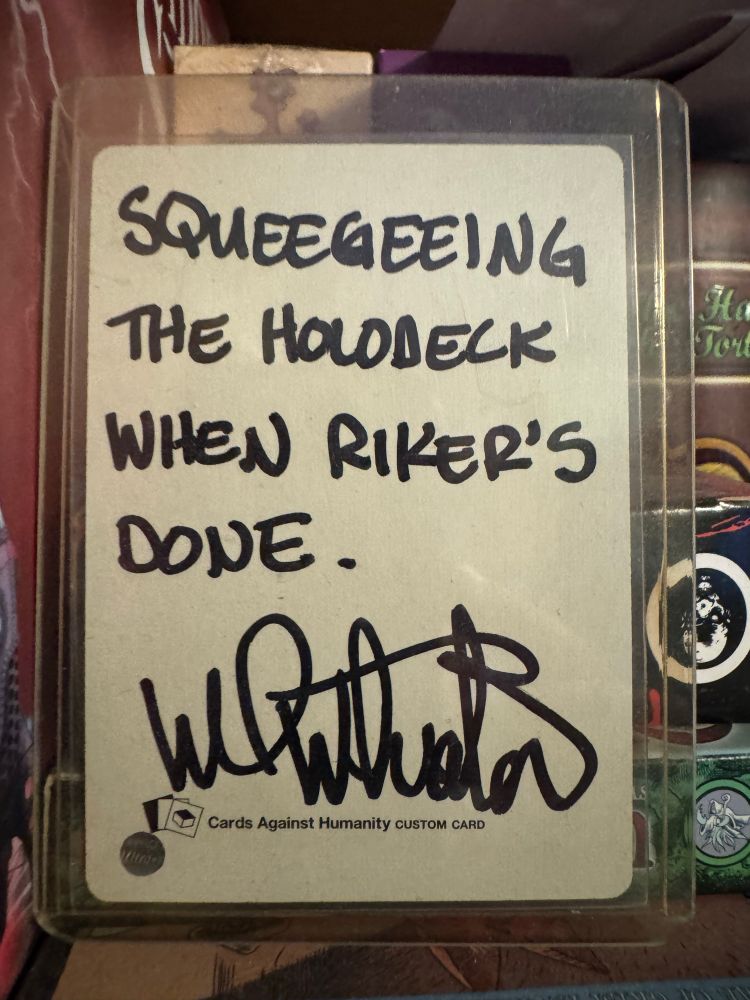 SQUEEGEEING
THE HOLODECK
WHEN RIKER'S
DONE.
Wil Wheaton
Cards Against Humanity CUSTOM CARD
Ha
Tort